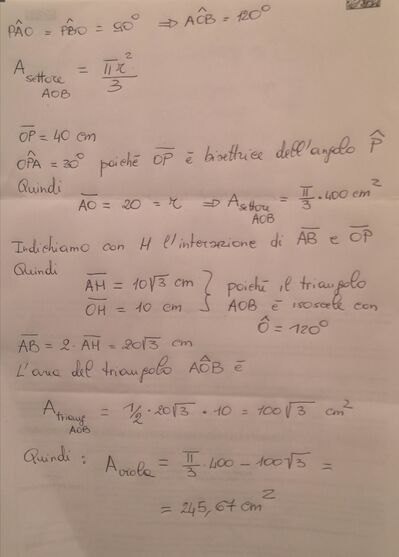 PÂO = PB̂O = 90° ⇒ AÔB = 120°
A settore AOB = πr²/3
OP = 40 cm
OP̂A = 30° poiché OP è bisettrice dell'angolo P̂
Quindi
AO = 20 = r ⇒ A settore AOB = π/3 · 400 cm²
Indichiamo con H l'interazione di AB e OP
Quindi
AH = 10√3 cm } poiché il triangolo
OH = 10 cm } AOB è isoscele con
Ô = 120°
AB = 2 · AH = 20√3 cm
L'area del triangolo AÔB è
A triang AOB = 1/2 · 20√3 · 10 = 100√3 cm²
Quindi : A viola = π/3 · 400 - 100√3 =
= 245,67 cm²